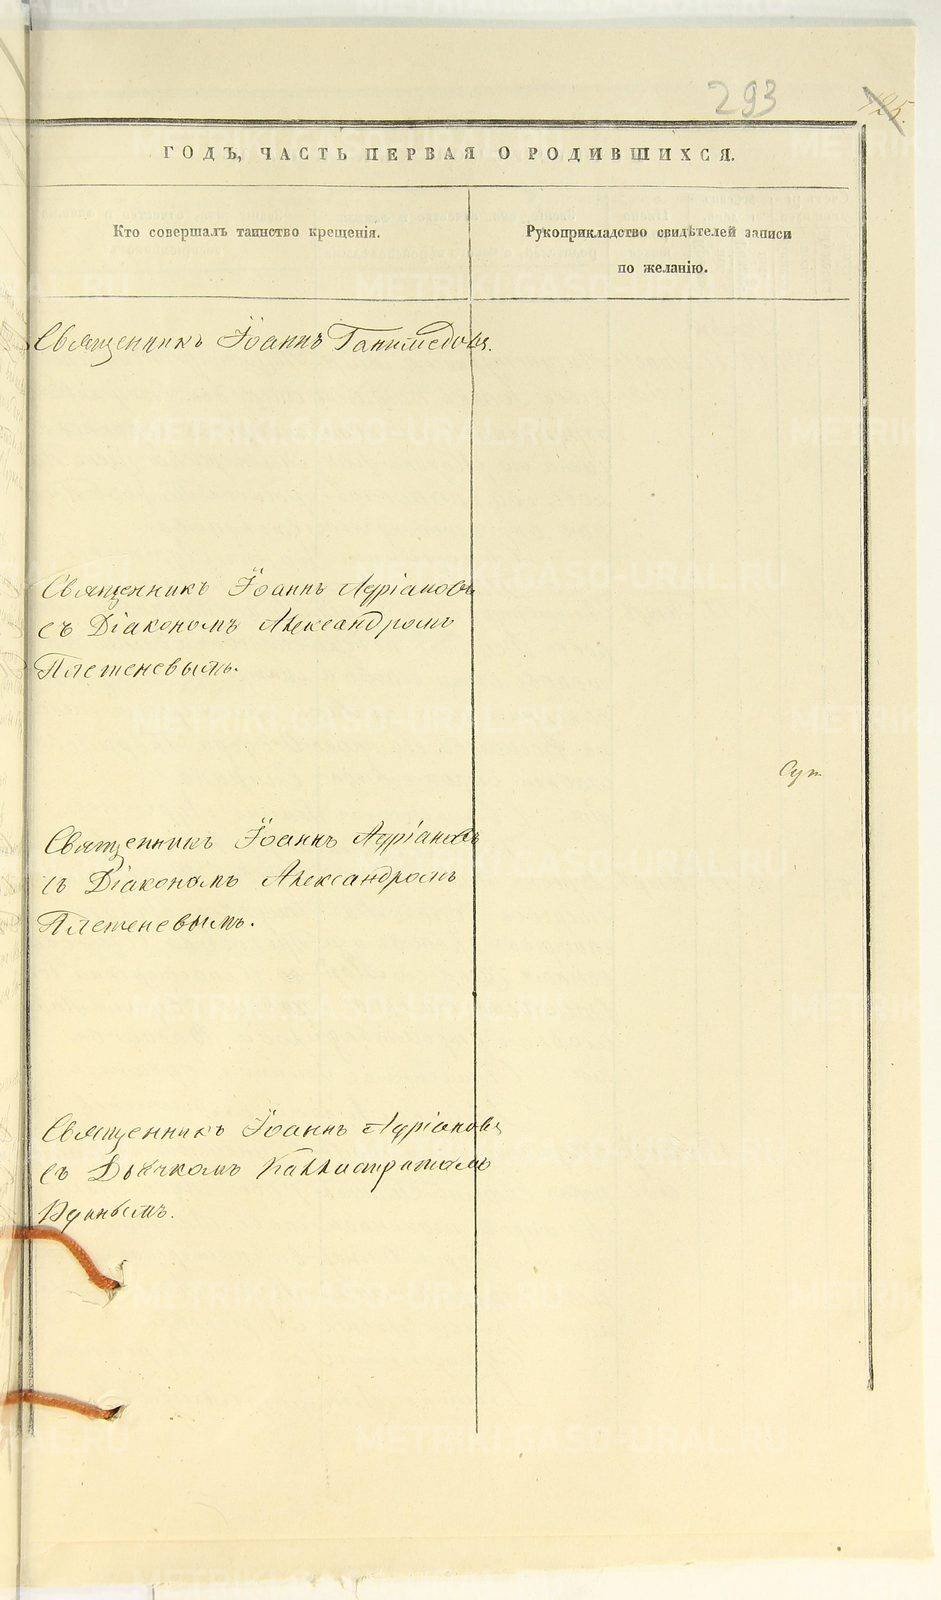 293
125.
ГОДЪ, ЧАСТЬ ПЕРВАЯ О РОДИВШИХСЯ.
Кто совершалъ таинство крещенія.
Рукоприкладство свидѣтелей записи
по желанію.
Священникъ Іоаннъ Ганимедовъ.
Священникъ Іоаннъ Адріановъ
съ Діакономъ Александромъ
Плетеневымъ.
Священникъ Іоаннъ Адріановъ
съ Діакономъ Александромъ
Плетеневымъ.
Священникъ Іоаннъ Адріановъ
съ Дьячкомъ Каллистратомъ
METRIKI.GASO-URAL.RU